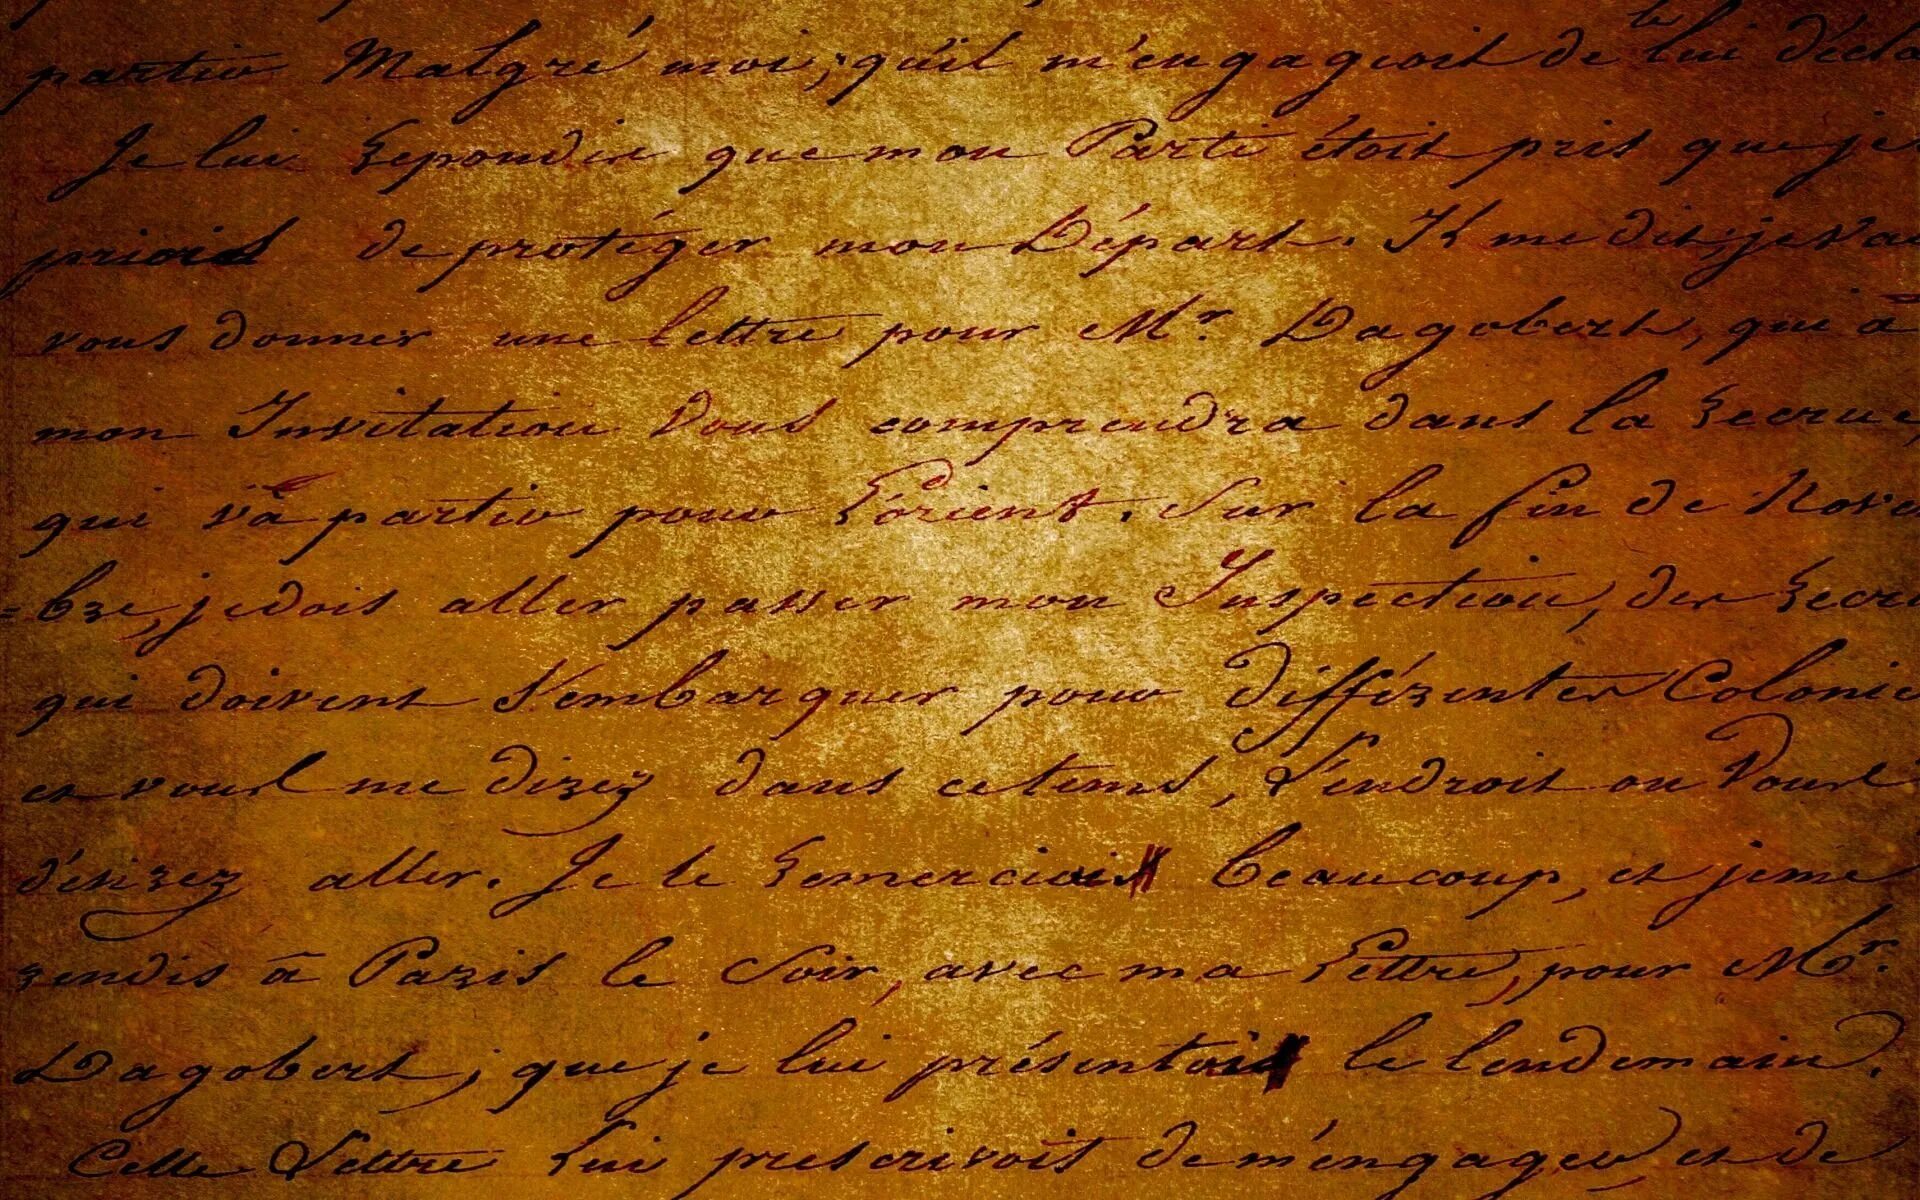 partir Malgré moi; qu'il m'engageoit de le lui décla
Je lui Repondis que mon Parti étoit pris que je
priois de protéger mon Départ. Il me dit; je va
vous donner une lettre pour Mr. Dagobert, qui à
mon Invitation Vous comprendra dans la Recrue,
qui va partir pour L'orient. Sur la fin de Nove
=bre, je dois aller passer mon Inspection, des Recru
qui doivent s'embarquer pour différentes Colonie
et vous me direz dans ce tems, l'endroit ou Vous
désirez aller. Je le Remerciois Beaucoup, et je me
rendis à Paris le Soir, avec ma Lettre, pour Mr.
Dagobert; que je lui présentois le lendemain.
Cette Lettre Lui prescrivoit de m'engager et de